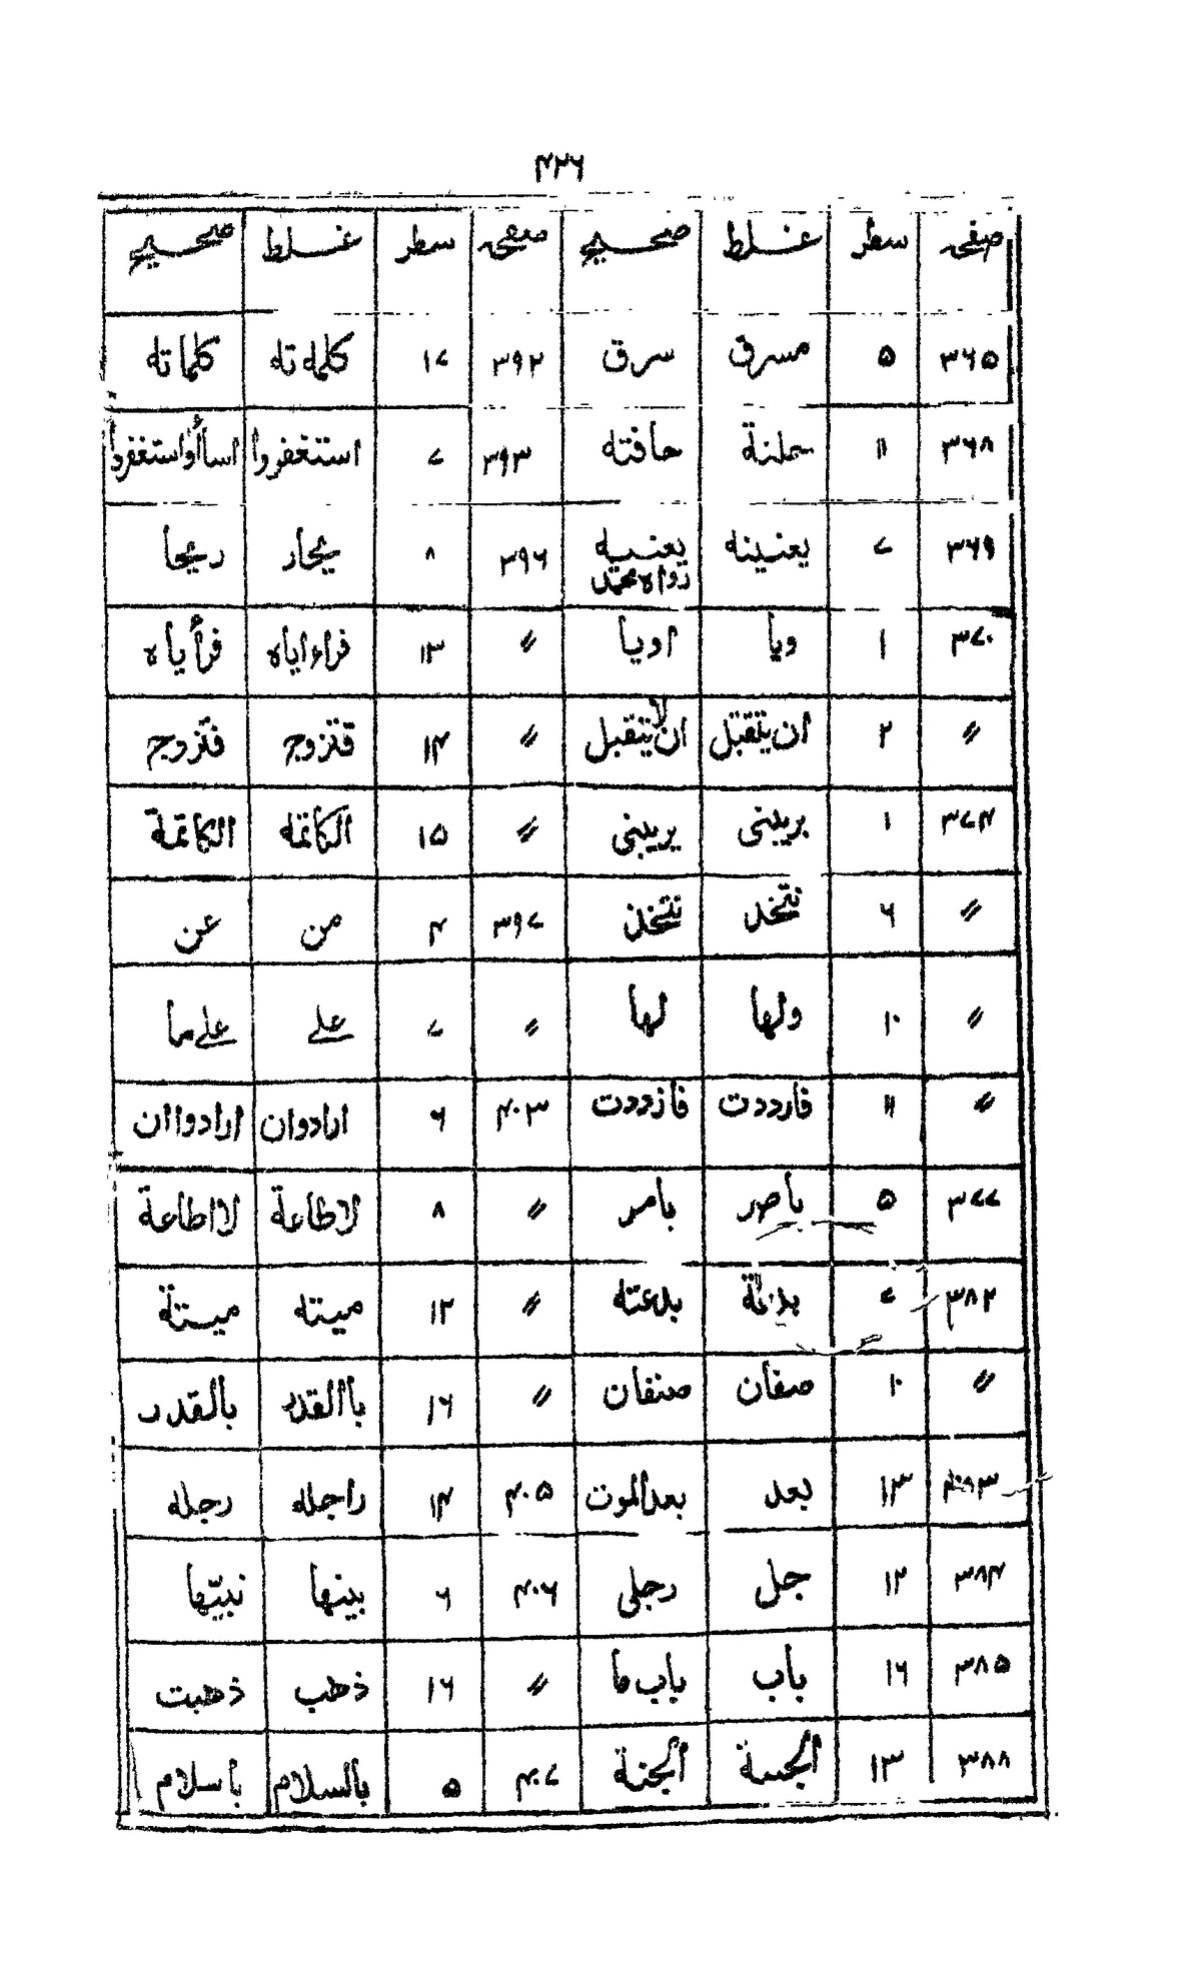 ۴۲۶
صفحہ سطر غلط صحیح صفحہ سطر غلط صحیح
۳۶۵ ۵ مسرق سرق ۳۹۲ ۱۷ کلمہ تہ کلماتہ
۳۶۸ ۱۱ حافتہ ۳۹۳ ۷ استغفروا اسأ لواستغفروا
۳۶۹ ۷ یعنینہ یعنیہ رواہ محمد ۳۹۶ ۸ یجار ریحا
۳۷۰ ۱ ویا اویا 〃 ۱۳ فراءایاہ فرأیاہ
〃 ۲ ان یتقبل ان لا یتقبل 〃 ۱۴ قتزوج فتزوج
۳۷۴ ۱ بریبنی یریبنی 〃 ۱۵ الکاتمہ الکاتمة
〃 ۶ نتخد نتخذ ۳۹۷ ۴ من عن
〃 ۱۰ ولہا لہا 〃 ۷ علے علے ما
〃 ۱۱ فارددت فازددت ۴۰۳ ۶ ارادوان ارادواان
۳۷۷ ۵ باصر بامر 〃 ۸ لاطاعة لااطاعة
۳۸۲ ۷ بدعتہ 〃 ۱۲ میتہ میتة
〃 ۱۰ صفان صنفان 〃 ۱۶ باالقدر بالقدر
۳۸۳ ۱۳ بعد بعدالموت ۴۰۵ ۱۴ راجلہ رجلہ
۳۸۴ ۱۲ جل رجلی ۴۰۶ ۶ بینہا نبیّہا
۳۸۵ ۱۶ باب باب ما 〃 ۱۶ ذھب ذھبت
۳۸۸ ۱۳ الجسة الجنة ۴۰۷ ۵ بالسلام باسلام